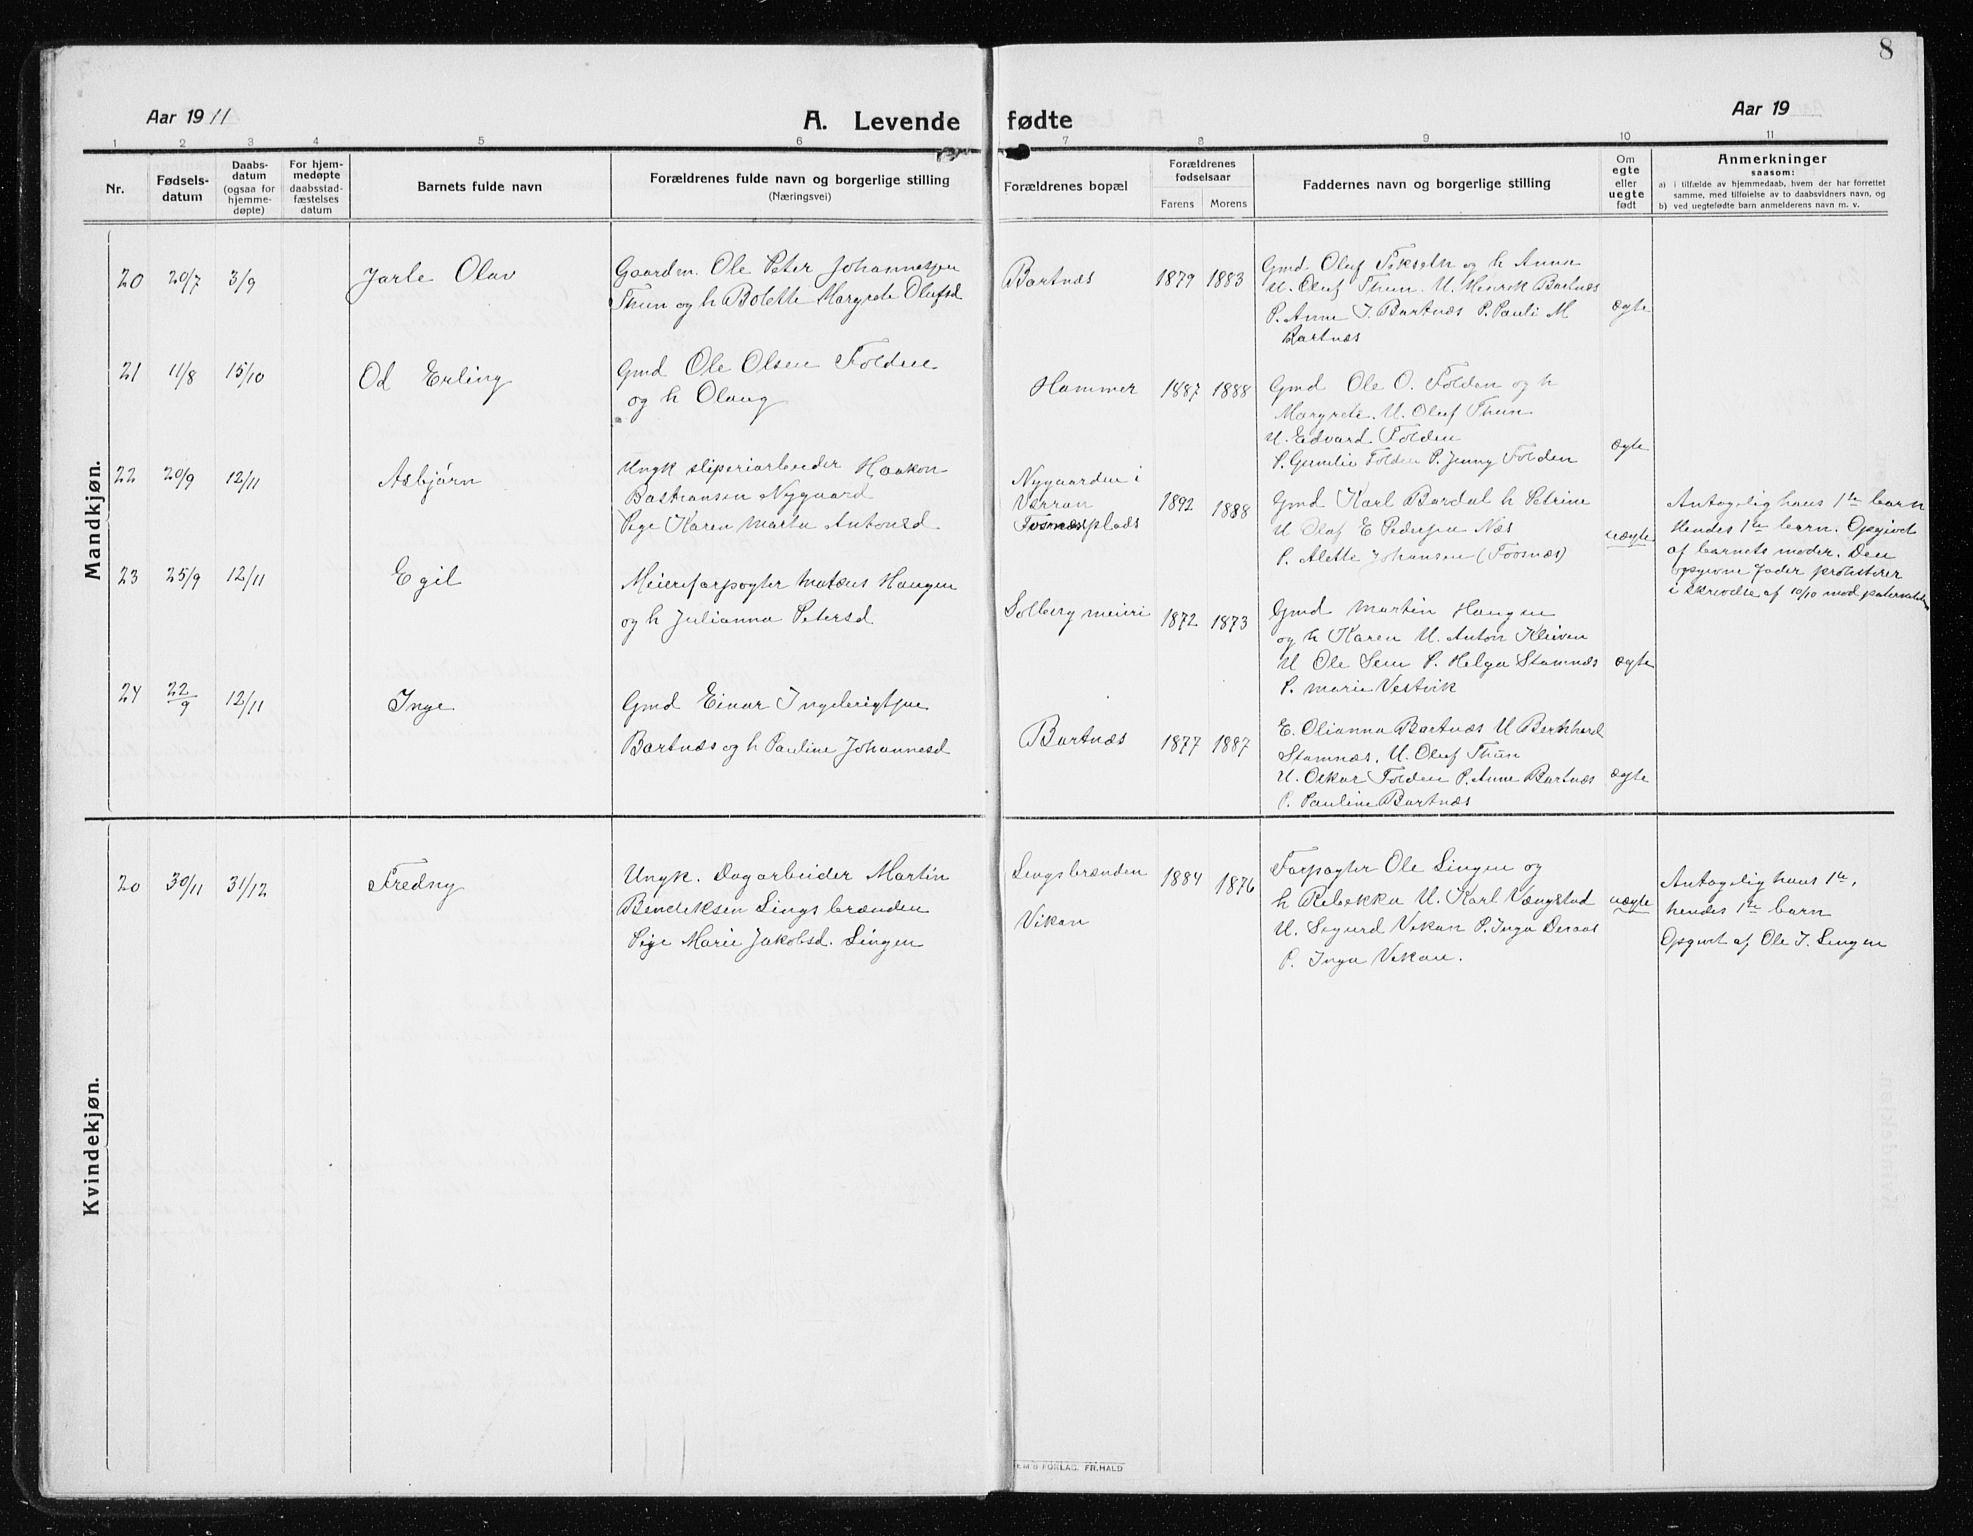 8
Aar 1911
A. Levende fødte
Aar 19
1 2 3 4 5 6 7 8 9 10 11
Nr.
Fødsels-
datum
Daabs-
datum
(ogsaa for
hjemme-
døpte)
For hjem-
medøpte
daabsstad-
fæstelses
datum
Barnets fulde navn
Forældrenes fulde navn og borgerlige stilling
(Næringsvei)
Forældrenes bopæl
Forældrenes
fødselsaar
Farens Morens
Faddernes navn og borgerlige stilling
Om
egte
eller
uegte
født
Anmerkninger
saasom:
a) i tilfælde av hjemmedaab, hvem der har forrettet
samme, med tilføielse av to daabsvidners navn, og
b) ved uegtefødte barn anmelderens navn m. v.
Mandkjøn.
20 20/7 3/9
Jarle Olav
Gaardm. Ole Peter Johannesen
Thun og h Bolette Margrete Olufsd
Bartnæs
1879 1883
Gmd Oluf Fikseln og h Anna
U. Oluf Thun. U. Henrik Bartnæs
P. Anne J. Bartnæs P. Pauli M
Bartnæs
ægte
21 11/8 15/10
Od Erling
Gmd Ole Olsen Folden
og h Olaug
Hammer
1887 1888
Gmd Ole O. Folden og h
Margrete. U. Oluf Thun
U. Edvard Folden
P. Gunelie Folden P. Jenny Folden
ægte
22 20/9 12/11
Asbjørn
Ungk sliperiarbeider Haakon
Bastiansen Nygaard
Pige Karen Marta Antonsd.
Nygaarden i
Verran
Fosnæsplads
1892 1888
Gmd Karl Bardal h Petrine
U Olaf E Pedersen Næs
P. Alette Johansen (Fosnæs)
uægte
Antagelig hans 1te barn
Hendes 1te barn. Opgivet
af barnets moder. Den
opgivne fader protesterer
i skrivelse af 10/10 mod paterniteten
23 25/9 12/11
Egil
Meieriforpagter Mateus Haugen
og h Julianna Petersd
Solberg meieri
1872 1873
Gmd Martin Haugen
og h Karen U. Anton Kleiven
U Ole Sem P. Helga Stamnæs
P. Marie Vestvik
ægte
24 22/9 12/11
Inge
Gmd Einar Ingebrigtsen
Bartnæs og h Pauline Johannesd
Bartnæs
1877 1887
E. Olianna Bartnæs U Bernhard
Stamnæs. U. Oluf Thun
U. Oskar Folden P. Anne Bartnæs
P. Pauline Bartnæs
ægte
Kvindekjøn.
20 30/11 31/12
Fredny
Ungk. Dagarbeider Martin
Bendiksen Lingsbrænden
Pige Marie Jakobsd. Lingen
Lingsbrænden
Vikan
1884 1876
Forpagter Ole Lingen og
h Rebekka U. Karl Vængstad
U. Sigurd Vikan P. Inga Deraas
P. Inga Vikan.
uægte
Antagelig hans 1te,
hendes 1te barn
Opgivet af Ole J. Lingen
FORLAG. FR. HALD